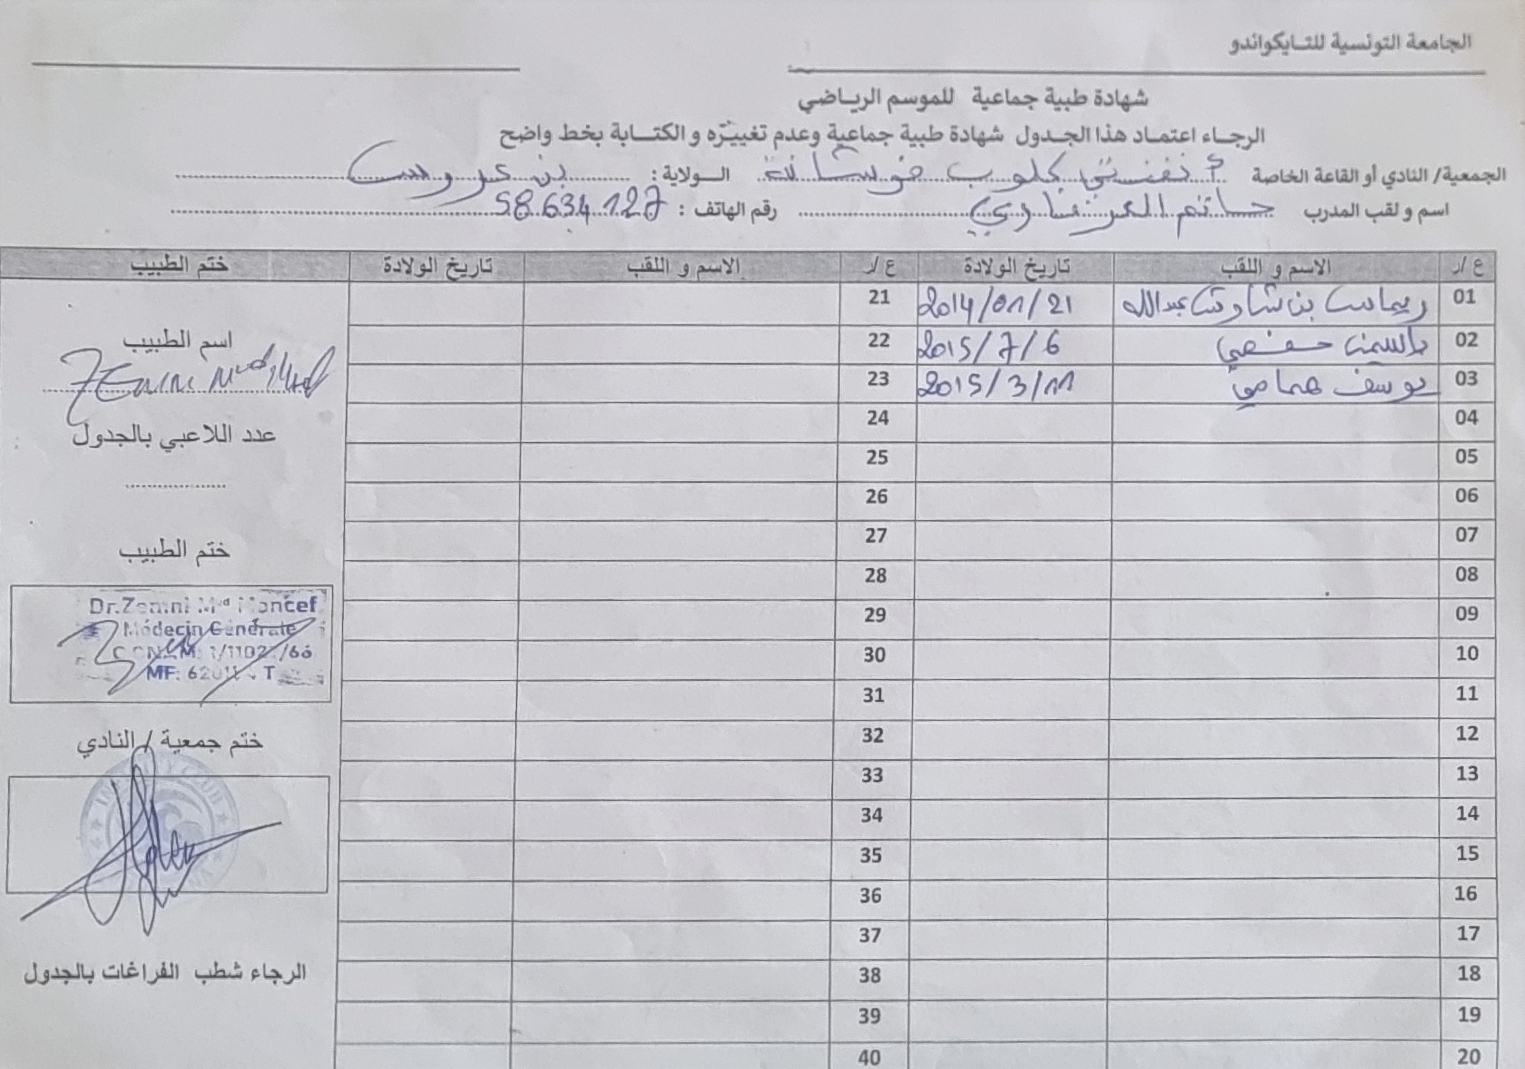 الجامعة التونسية للتايكواندو
شهادة طبية جماعية للموسم الرياضي
الرجاء اعتماد هذا الجدول شهادة طبية جماعية وعدم تغييره و الكتابة بخط واضح
الجمعية/ النادي أو القاعة الخاصة أنفنتي كلوب فوشانة الولاية: بن عروس
اسم و لقب المدرب حاتم رقم الهاتف: 58.634.127
ع/ر الاسم و اللقب تاريخ الولادة ع/ر الاسم و اللقب تاريخ الولادة ختم الطبيب
01 ريماس بن عبدالله 2014/01/21 21
02 ياسمين حفصي 2015/7/6 22
03 يوسف همامي 2015/3/11 23
04 24
05 25
06 26
07 27
08 28
09 29
10 30
11 31
12 32
13 33
14 34
15 35
16 36
17 37
18 38
19 39
20 40
اسم الطبيب
عدد اللاعبي بالجدول
ختم الطبيب
Dr.Zemni Med Moncef
Médecin Générale
ختم جمعية / النادي
الرجاء شطب الفراغات بالجدول